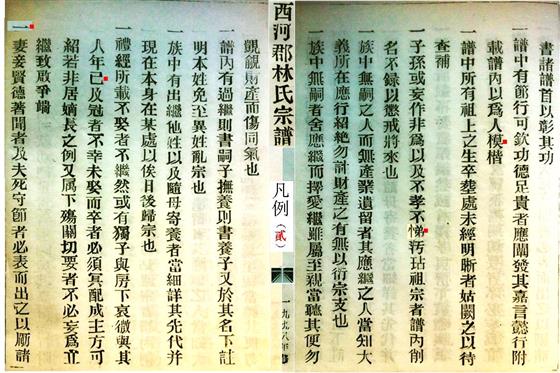 書諸譜首以彰其功
一譜中有節行可欽功德足貴者應闡發其嘉言懿行附
載譜內以為人模楷
一譜中所有祖上之生卒葬處未經明晰者姑闕之以待
查補
一子孫或妄作非為以及不孝不悌汚玷祖宗者譜內削
名不錄以懲戒將來也
一族中無嗣之人而無產業遺留者其應繼之人當知大
義所在應行紹絶勿計財產之有無以衍宗支也
一族中無嗣者舍應繼而擇愛繼雖屬至親當聽其便勿
西河郡林氏宗譜
凡例(貳)
一九九八年
覦財產而傷同氣也
一譜內有過繼則書嗣子撫養則書養子又於其名下註
明本姓免至異姓亂宗也
一族中有出繼他姓以及隨母寄養者當細詳其先代并
現在本身在某處以俟日後歸宗也
一禮經所載不娶者不繼然或有獨子與房下哀微與其
人年已及冠者不幸未娶而卒者必須冥配成主方可
紹若非居嫡長之例又属下殤關切要者不必妄為立
繼致啟爭端
一妻妾賢德著聞者及夫死守節者必表而出之以厲諸